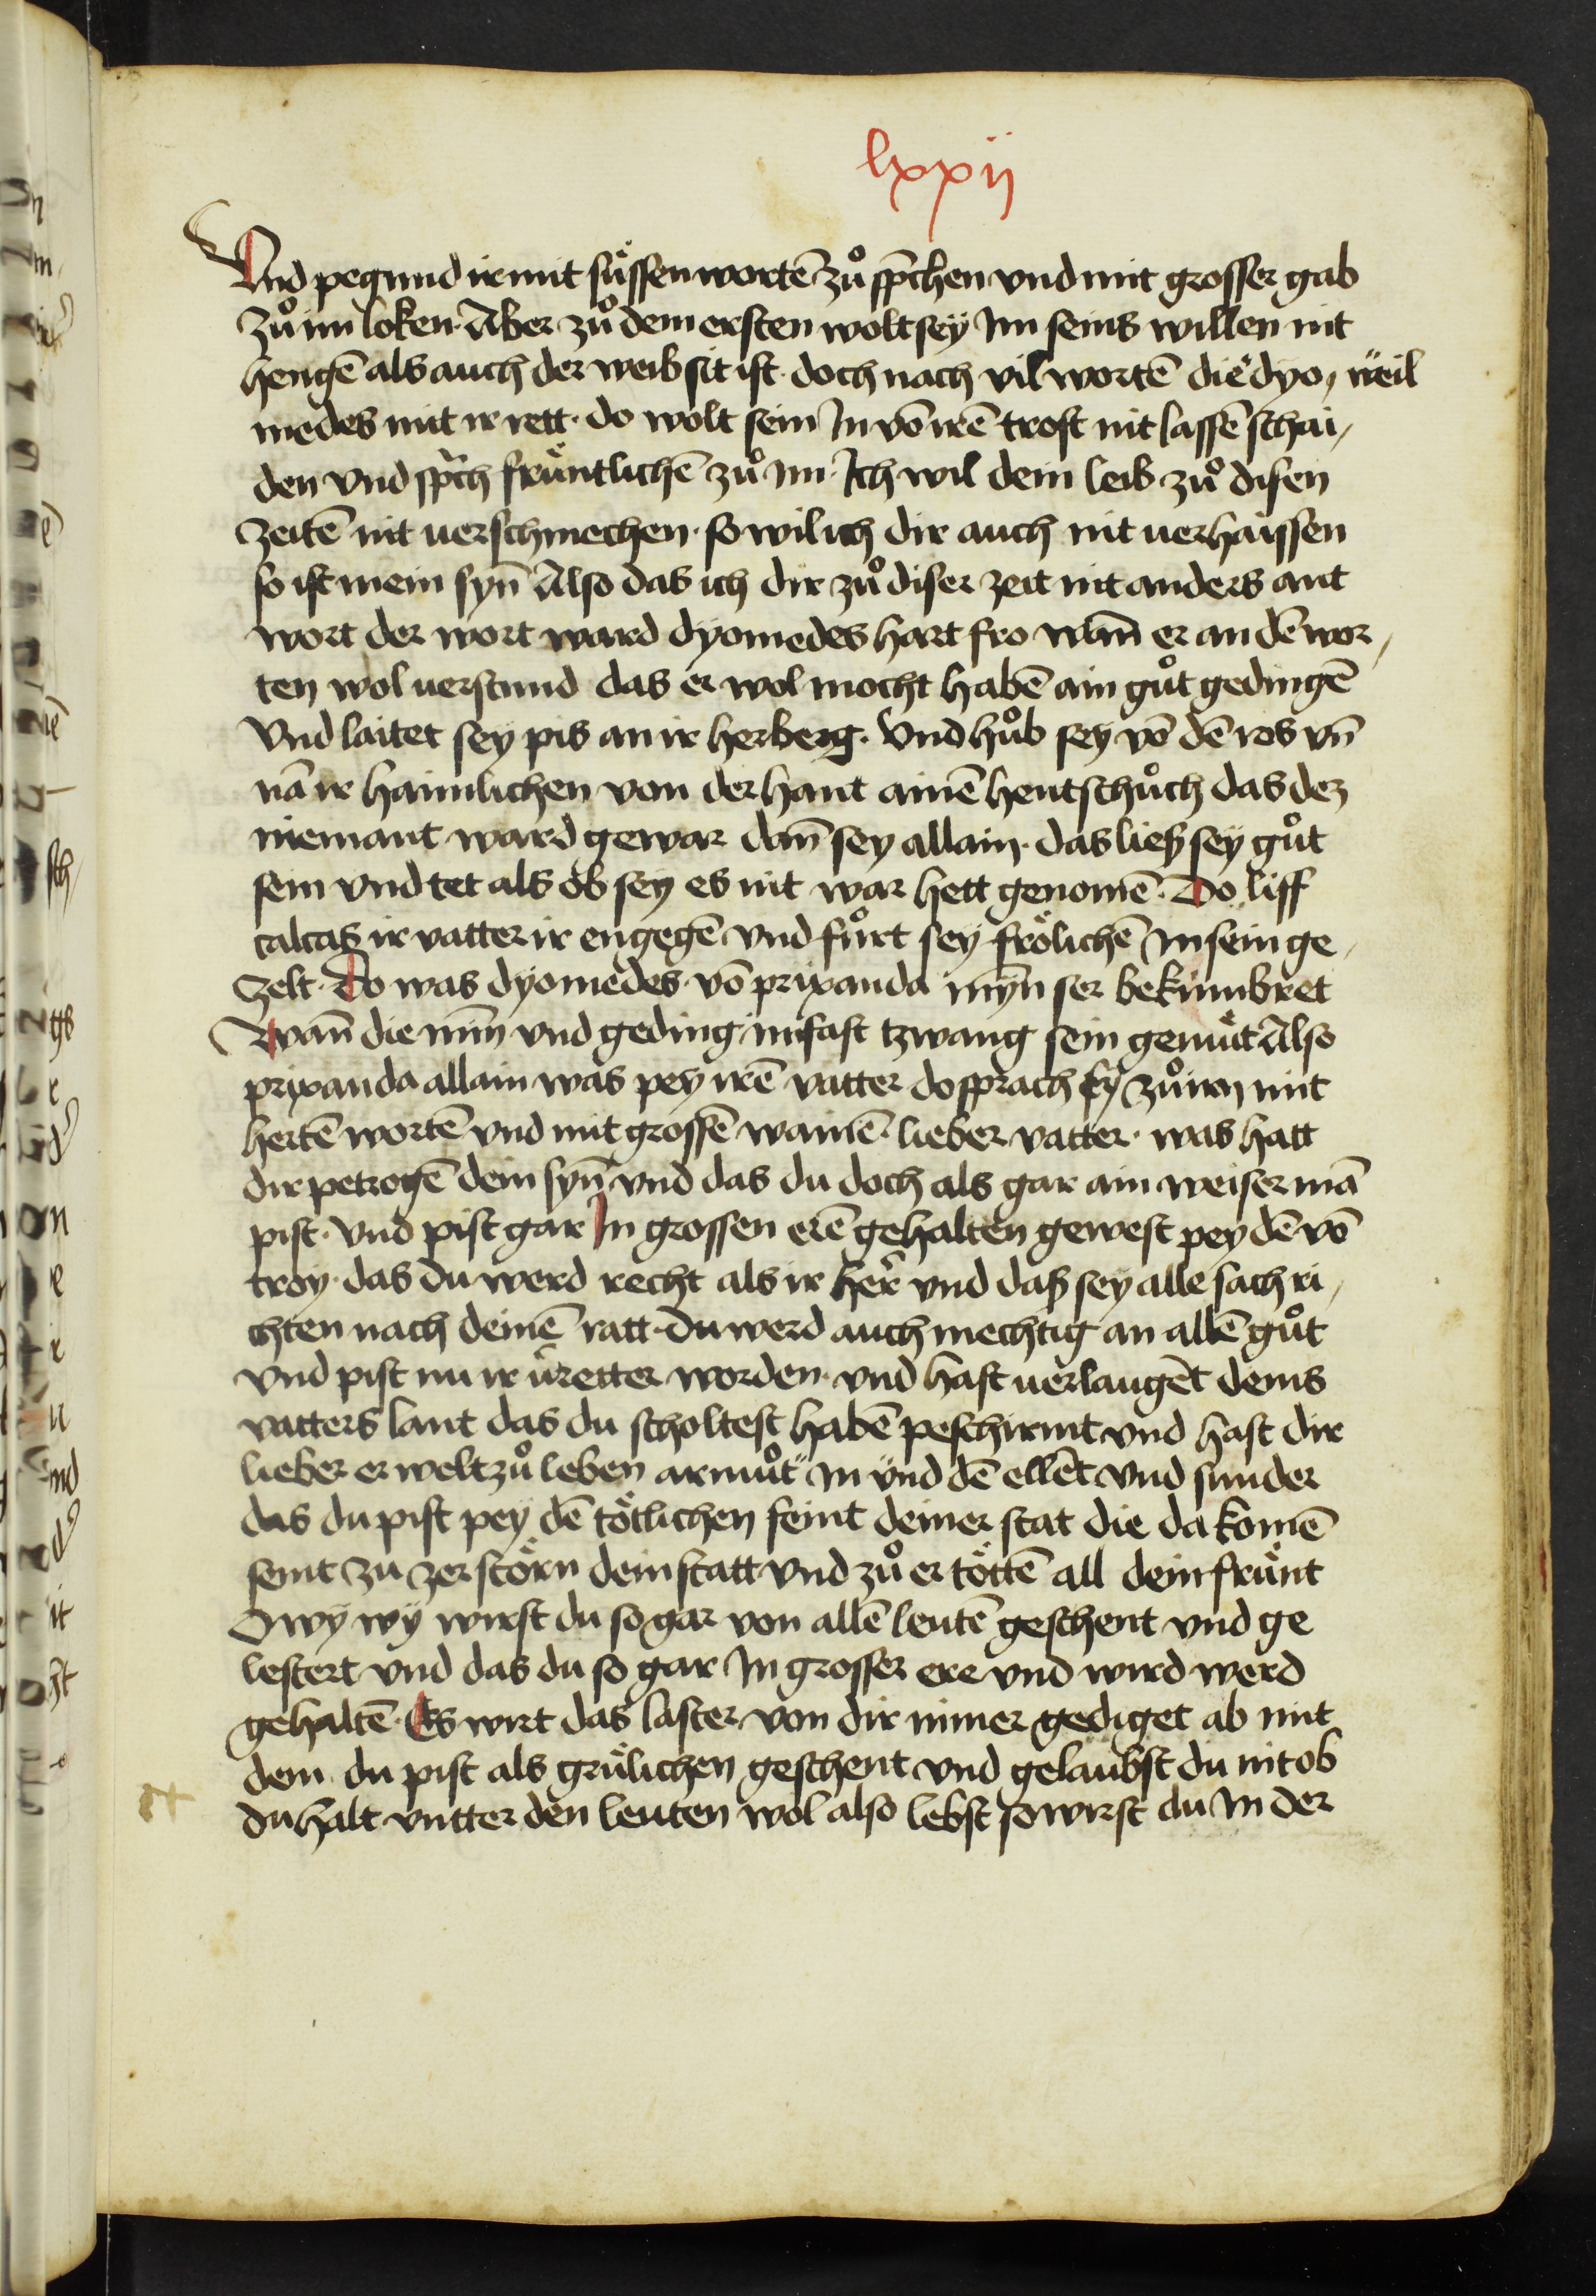 lxxij
Vnd pegund ir mit süssen wortē zů sp̄chen vnd mit grosser gab
zů im loken. Aber zů dem ersten wolt sey Im seins willen nit
hengē als auch der weib sit ist. doch nach vil wortē die dyo⸗ weil
medes mit ir rett. do wolt sein In vō irē trost nit lassē schai⸗
den vnd sp̄ch früntlichē zů Im. Ich wil dein leib zů disen
zeitē nit uerschmechen. so wil ich dir auch nit uerhaissen
so ist mein syn̄ Also das ich dir zů diser zeit nit anders ant
wort der wort ward dyomedes hart fro wan̄ er an dē wor⸗
ten wol uerstund das er wol mocht habē ain gůt gedingē
Vnd laitet sey pis an ir herberg. Vnd hůb sey vō dē ros vn̄
nā ir haimlichen von der hant ainē hentschůch das dez
niemant ward gewar dan̄ sey allain. das liesz sey gůt
sein vnd tet als ob sey es nit war hett genomē. Do liff
calcas ir vatter ir engegē vnd fůrt sey frölichē In sein ge⸗
zelt. Do was dyomedes vō prixanda myn̄ ser bekümbret
Wan̄ die min̄ vnd geding im fast tzwang sein gemüt Also
prixanda allain was pey irē vatter do sprach sy zů im mit
hertē wortē vnd mit grossē wainē. lieber vatter. was hatt
dir petrogē dein syn̄ vnd das du doch als gar ain weiser mā
pist. vnd pist gar In grossen erē gehalten gewest pey dē vō
troy. das du werd recht als ir her̄ vnd dasz sey alle sach ri⸗
chten nach deinē ratt. du werd auch mechtig an allē gůt
vnd pist nu ir v̄retter worden. vnd hast uerlaugēt deins
vatters lant das du scholtest habē peschirmt vnd hast dir
lieber er welt zů leben armůt" in "vnd dē ellēt vnd sunder
das du pist pey dē tötlichen feint deiner stat die da komē
seint zu zerstörn dein statt vnd zů er töttē all dein frünt
O wy wy wirst du so gar von allē leutē geschent vnd ge
lestert vnd das du so gar In grosser ere vnd wird werd
gehaltē. Es wirt das laster von dir nimer gediget ab mit
dem du pist als grülichen geschent vnd gelaubst du nit ob
du halt vntter den leuten wol also lebst so wirst du In der